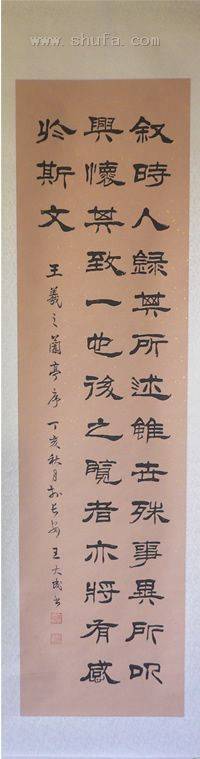 www.shufa.com
叙時人錄其所述雖世殊事異所以
興懷其致一也後之覽者亦將有感
於斯文
王羲之蘭亭序 丁亥秋月於长安王大成书